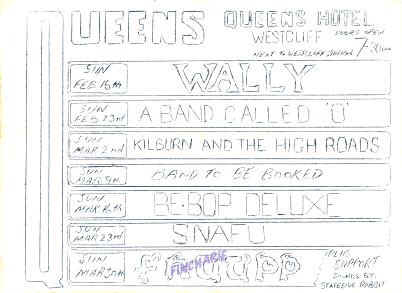 QUEENS
QUEENS HOTEL
WESTCLIFF
NEXT TO WESTCLIFF STATION
DOORS OPEN
7-30pm
SUN
FEB 16th
WALLY
SUN
FEB 23rd
A BAND CALLED 'O'
SUN
MAR 2nd
KILBURN AND THE HIGH ROADS
SUN
MAR 9th
BAND TO BE BOOKED
SUN
MAR 16th
BE-BOP DELUXE
SUN
MAR 23rd
SNAFU
SUN
MAR 30th
FRUUPP
PLUS
SUPPORT